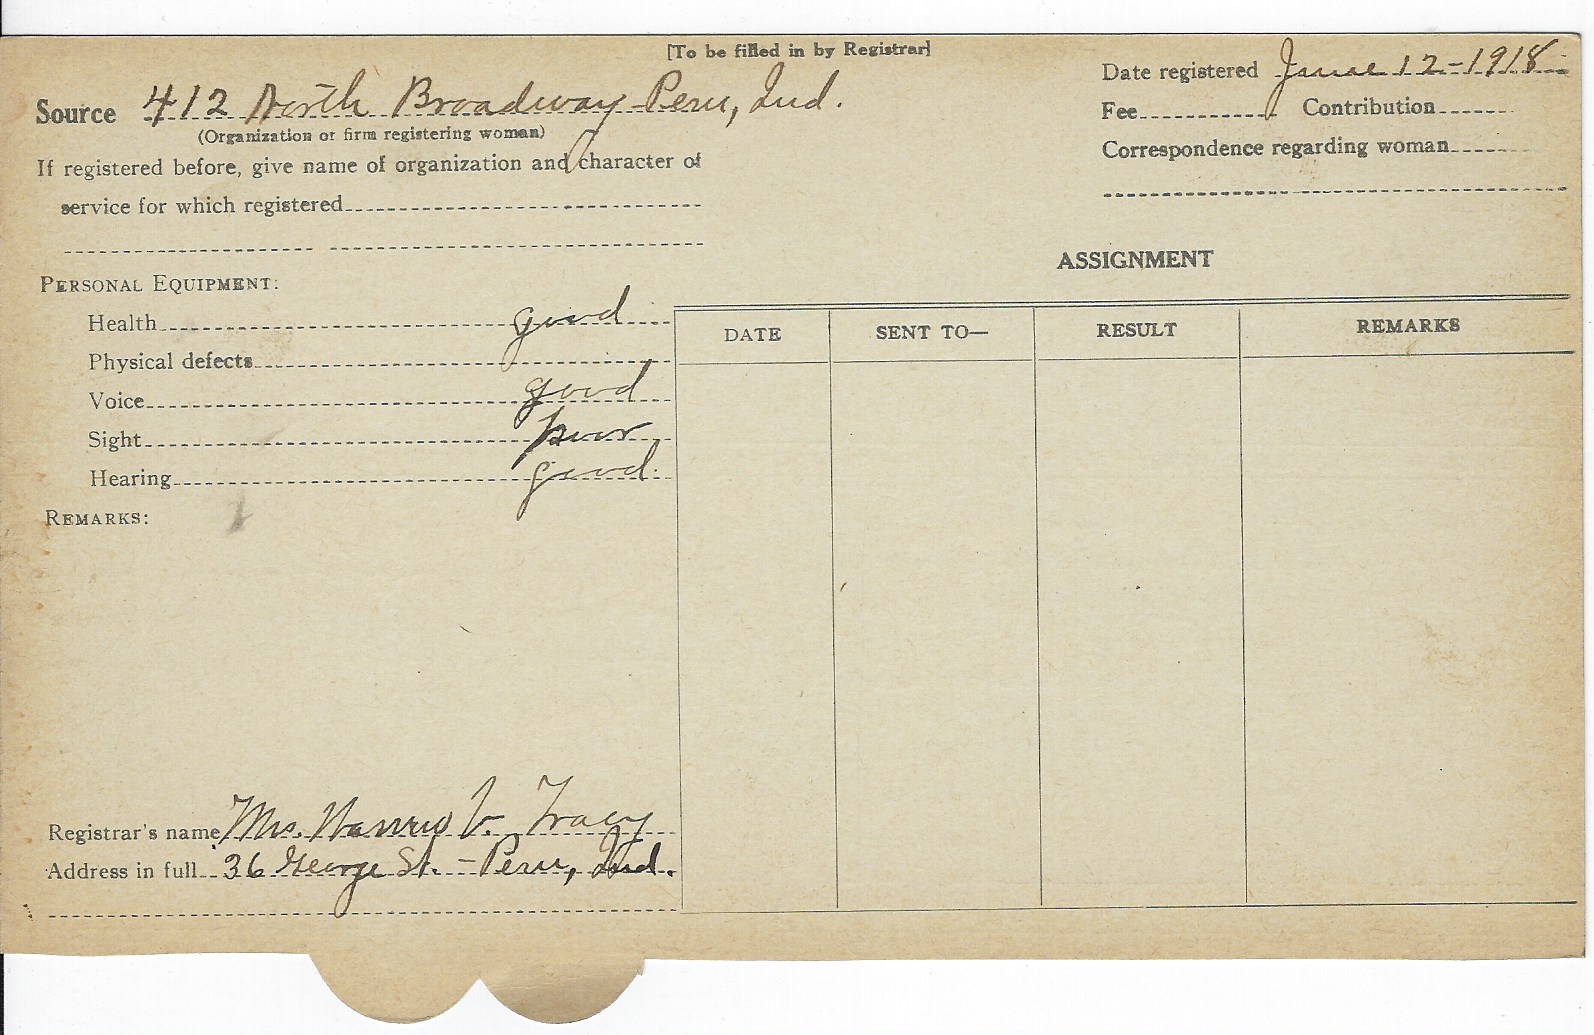 [To be filled in by Registrar]
Source 412 North Broadway Peru, Ind.
(Organization or firm registering woman)
If registered before, give name of organization and character of
service for which registered
Date registered June 12-1918
Fee Contribution
Correspondence regarding woman
PERSONAL EQUIPMENT:
Health good
Physical defects
Voice good
Sight poor
Hearing good.
REMARKS:
ASSIGNMENT
DATE SENT TO— RESULT REMARKS
Registrar's name Mrs. V. Tracy
Address in full 36 George St. - Peru, Ind.